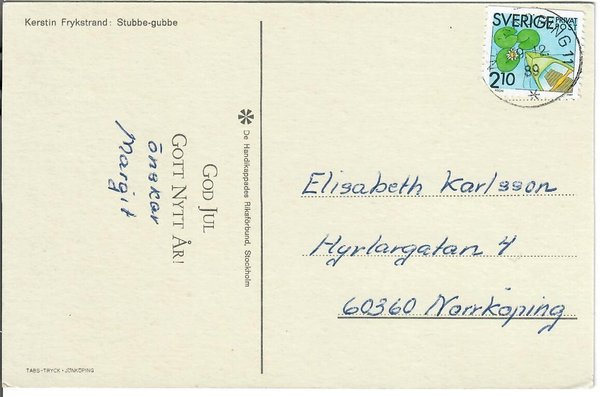 Kerstin Frykstrand: Stubbe-gubbe
SVERIGE PRIVAT
POST
2.10
NG 11
12
89
GOD JUL
GOTT NYTT ÅR!
önskar
Margit
De Handikappades Riksförbund, Stockholm
Elisabeth Karlsson
Hyrlargatan 4
60360 Norrköping
TABS-TRYCK • JÖNKÖPING